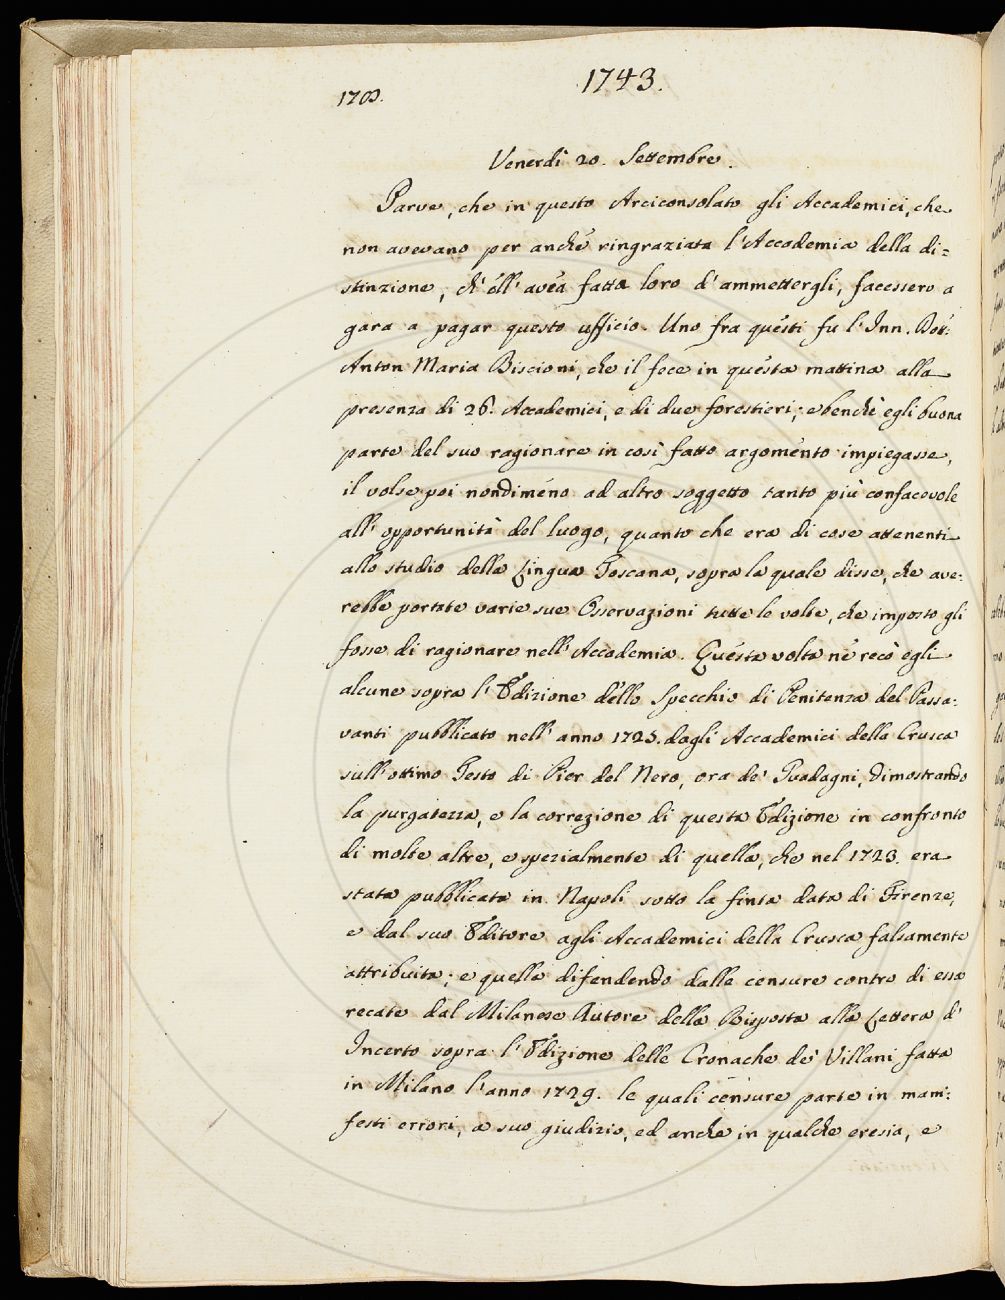 1743.
1703.
Venerdì 20. Settembre.
Parve, che in questo Arciconsolato gli Accademici, che
non avevano per anche ringraziata l'Accademia della di=
stinzione, ch'ell'avea fatta loro d'ammettergli, facessero a
gara a pagar questo ufficio. Uno fra questi fu l'Inn. Dott:
Anton Maria Biscioni, che il fece in questa mattina alla
presenza di 26. Accademici, e di due forestieri; e benchè egli buona
parte del suo ragionare in così fatto argomento impiegasse,
il volse poi nondimeno ad altro soggetto tanto più confacevole
all'opportunità del luogo, quanto che era di cose attenenti
allo studio della Lingua Toscana, sopra la quale disse, che ave=
rebbe portate varie sue Osservazioni tutte le volte, che imposto gli
fosse di ragionare nell'Accademia. Questa volta ne recò egli
alcune sopra l'Edizione dello Specchio di Penitenza del Passa=
vanti pubblicato nell'anno 1725. dagli Accademici della Crusca
sull'ottimo Testo di Pier del Nero, ora de' Guadagni, dimostrando
la purgatezza, e la correzione di questa Edizione in confronto
di molte altre, e spezialmente di quella, che nel 1723. era
stata pubblicata in Napoli sotto la finta data di Firenze,
e dal suo Editore agli Accademici della Crusca falsamente
attribuita; e quella difendendo dalle censure contro di essa
recate dal Milanese Autore della Risposta alla Lettera d'
Incerto sopra l'Edizione delle Cronache de' Villani fatta
in Milano l'anno 1729. le quali censure parte in mani=
festi errori, a suo giudizio, ed anche in qualche eresia, e